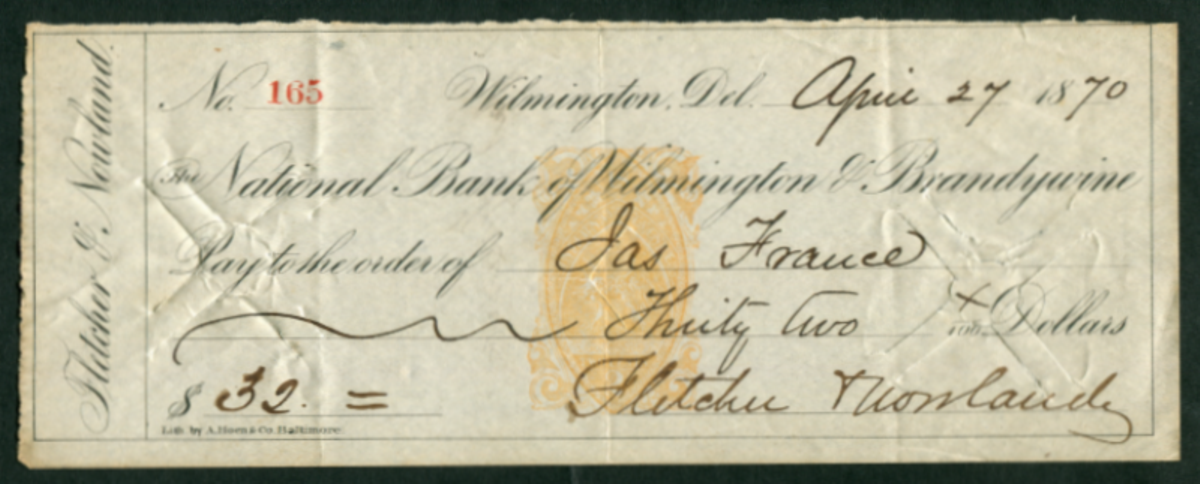 Fletcher & Nowland.
No. 165 Wilmington, Del. April 27 1870
The National Bank of Wilmington & Brandywine
Pay to the order of Jas France
Thirty two x/100 Dollars
$ 32. =
Fletcher & Nowland
Lith. by A. Hoen & Co. Baltimore.